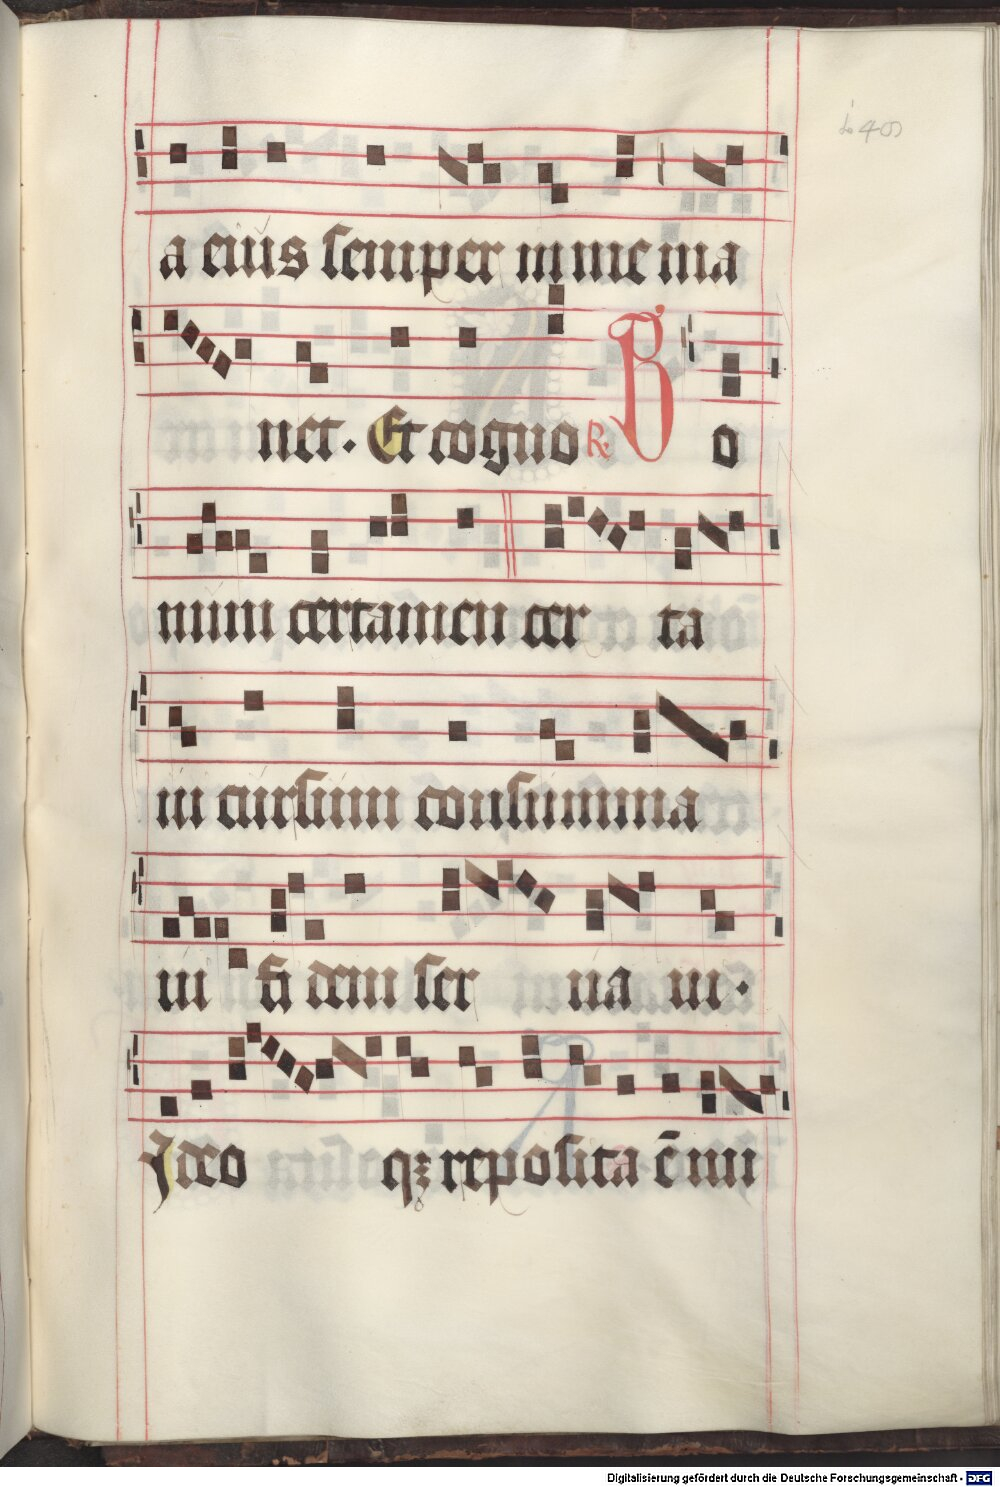 a eius semper in me ma
net. Et cogno R. B o
num certamen cer ta
ui cursum consumma
ui fi dem ser ua ui.
Ideo qꝫ reposita ē mi
Digitalisierung gefördert durch die Deutsche Forschungsgemeinschaft - DFG